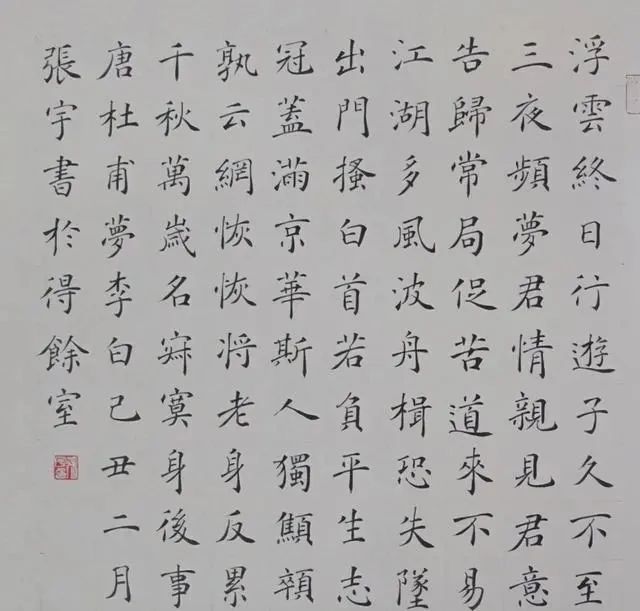 浮雲終日行遊子久不至
三夜頻夢君情親見君意
告歸常局促苦道來不易
江湖多風波舟楫恐失墜
出門搔白首若負平生志
冠蓋滿京華斯人獨顦顇
孰云網恢恢將老身反累
千秋萬歲名寂寞身後事
唐杜甫夢李白己丑二月
張宇書於得餘室